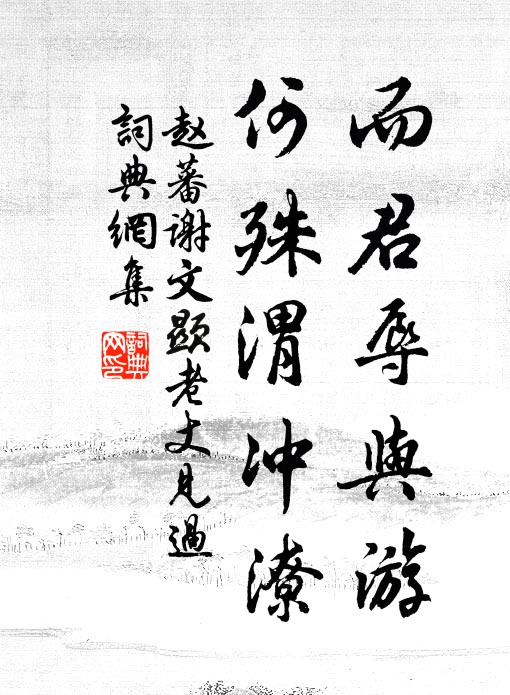 而君辱與游
何殊渭冲潦
赵蕃谢文顯老丈見過
詞典網集
詞典網印